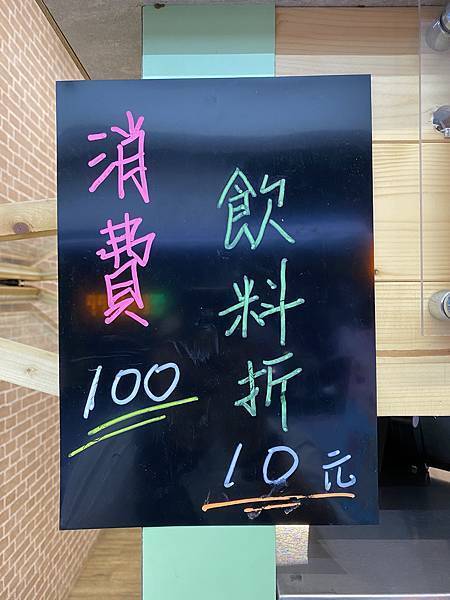 消費
100
飲料折
10元